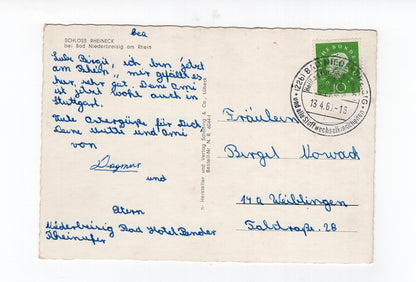 bea
SCHLOSS RHEINECK
bei Bad Niederbreisig am Rhein
Liebe Birgit, ich bin jetzt
am Rhein, mir gefällt es
hier sehr gut. Deine Ami
ist jetzt wohl auch in
Stuttgart.
Viele Ostergrüße für Dich
Deine Mutti und Ami
von
Dagmar
und
Eltern
Niederbreisig Bad Hotel Bender
Rheinufer
Hersteller und Verlag Schöning & Co., Lübeck
Bestell-Nr. N. R.
10
(22b) BAD NIEDERBREISIG
13.4.6 -18
und alle Stoffwechselkrankheiten
Fräulein
Birgit Nowack
14a Waiblingen
Talstraße 28